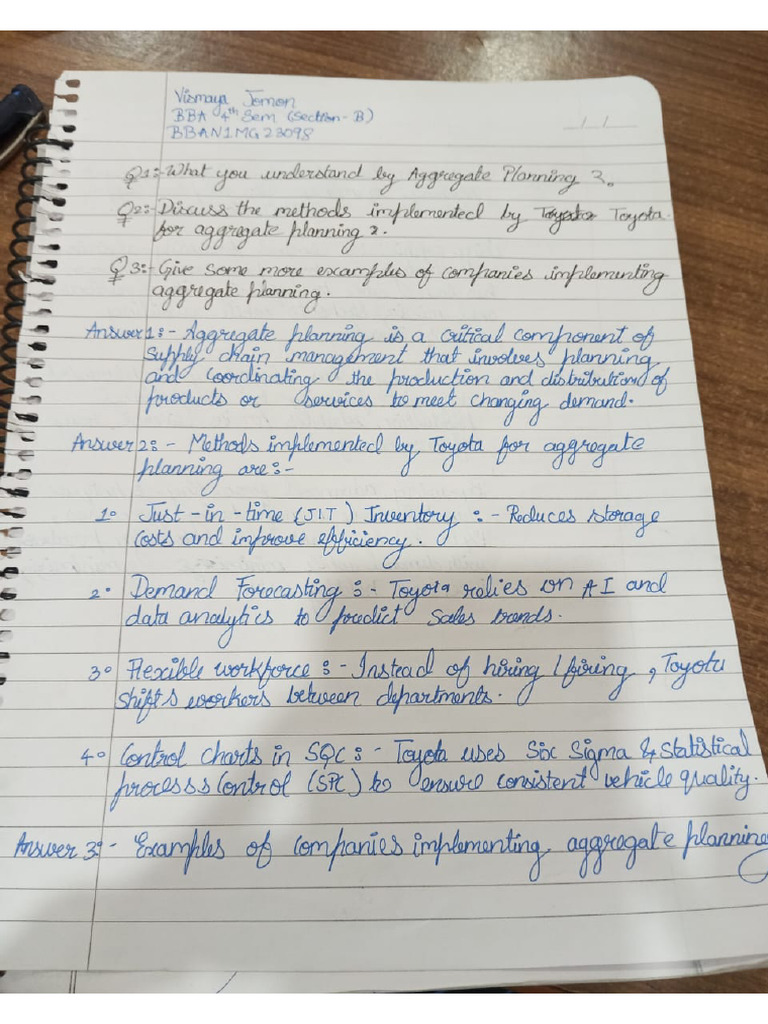 Vismaya Jomon
BBA 4th Sem (Section-B)
BBAN1MG23098
__/__/__
Q1:- What you understand by Aggregate Planning ?.
Q2:- Discuss the methods implemented by Toyota Toyota
for aggregate planning ?.
Q3:- Give some more examples of companies implementing
aggregate planning.
Answer 1:- Aggregate planning is a critical component of
supply chain management that involves planning
and coordinating the production and distribution of
products or services to meet changing demand.
Answer 2:- Methods implemented by Toyota for aggregate
planning are:-
1. Just-in-time (JIT) Inventory :- Reduces storage
costs and improve efficiency.
2. Demand Forecasting :- Toyota relies on AI and
data analytics to predict sales trends.
3. Flexible workforce :- Instead of hiring/firing, Toyota
shifts workers between departments.
4. Control charts in SQC :- Toyota uses Six Sigma & Statistical
process Control (SPC) to ensure consistent vehicle quality.
Answer 3:- Examples of companies implementing aggregate planning